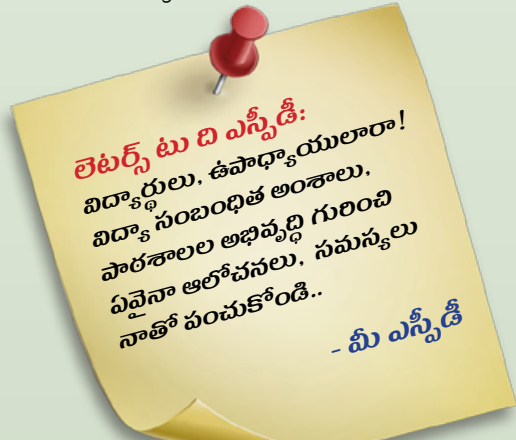 లెటర్స్ టు ది ఎస్పీడీ:
విద్యార్థులు, ఉపాధ్యాయులారా!
విద్యా సంబంధిత అంశాలు,
పాఠశాలల అభివృద్ధి గురించి
ఏవైనా ఆలోచనలు, సమస్యలు
నాతో పంచుకోండి..
- మీ ఎస్పీడీ